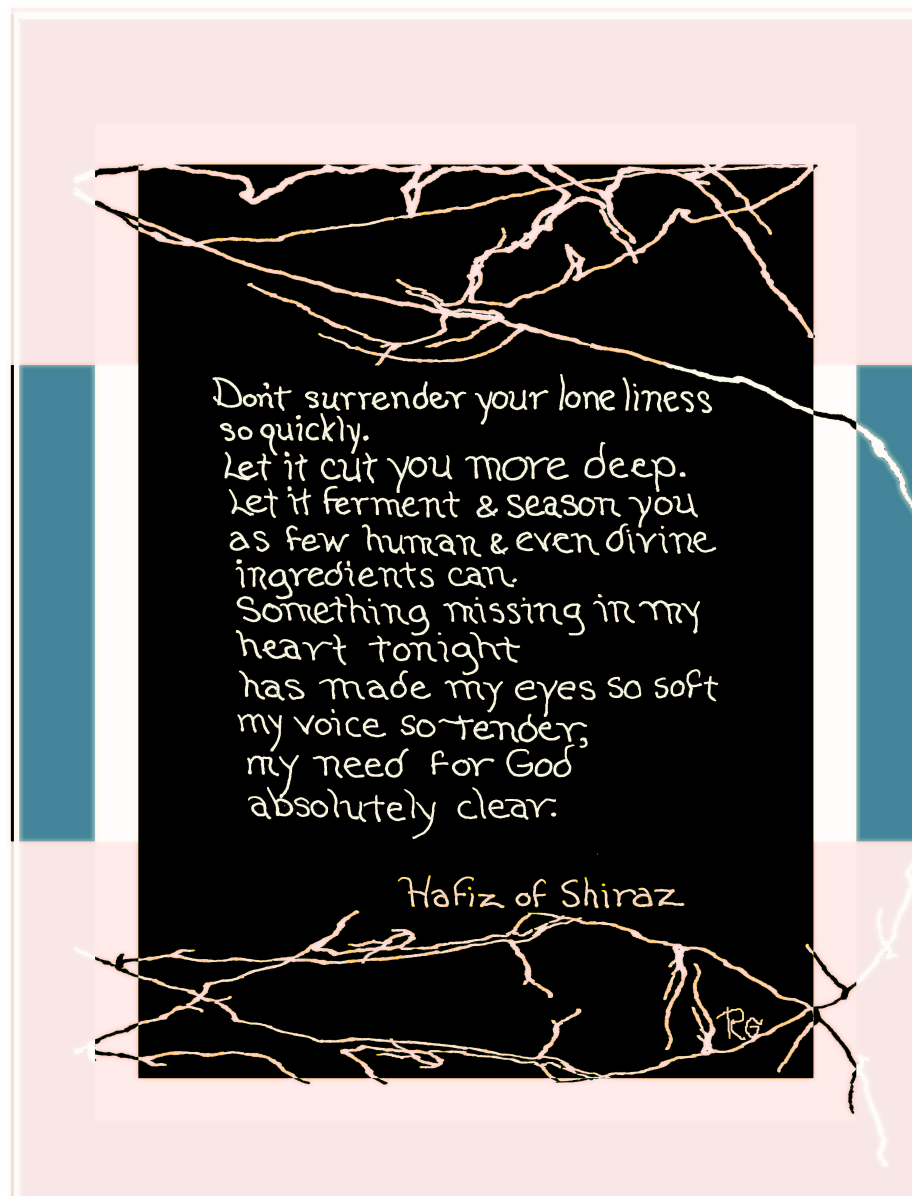 Don't surrender your loneliness
so quickly.
Let it cut you more deep.
Let it ferment & season you
as few human & even divine
ingredients can.
Something missing in my
heart tonight
has made my eyes so soft
my voice so tender,
my need for God
absolutely clear.
Hafiz of Shiraz
RG